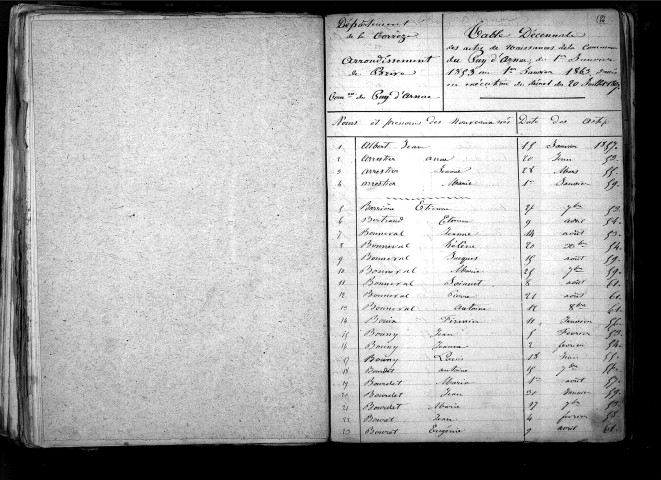 Département
de la Corrèze
Arrondissement
de Brive
Comune du Puy d'Arnac
Table Décennale
des actes de naissances de la Commune
du Puy d'Arnac, du 1er Janvier
1853 au 1er Janvier 1863, dressée
en exécution du décret du 20 Juillet 1807.
Noms et prénoms des Nouveaux nés Date des Actes
1 Albert Jean 15 Janvier 1857.
2 Arrestier anne 20 Juin 53.
3 arrestier Jeanne 28 Mars 55.
4 arrestier Marie 1er Janvier 59.
5 Barrière Etienne 27 7bre 53.
6 Bertrand Etienne 9 avril 54.
7 Bonneval Jeanne 14 août 53.
8 Bonneval hélène 20 Xbre 54.
9 Bonneval Jacques 15 août 59.
10 Bonneval Marie 25 7bre 59.
11 Bonneval 8 août 61.
12 Bonneval Pierre 21 août 61.
13 Bonneval Antoine 12 8bre 61.
14 Firmin 11 Janvier
15 Bouny Jean 5 Février
16 Bouny Jeanne 2 février 54.
17 Bouny Louis 18 Juin 55.
18 Bourdet antoine 15 7bre
19 Bourdet Maria 1er août 57.
20 Bourdet Jean 31 Janvier 59.
21 Bourdet Marie 17 7bre
22 Bouret Jean 4 fevrier 58
23 Bouret Eugénie 9 avril 61.